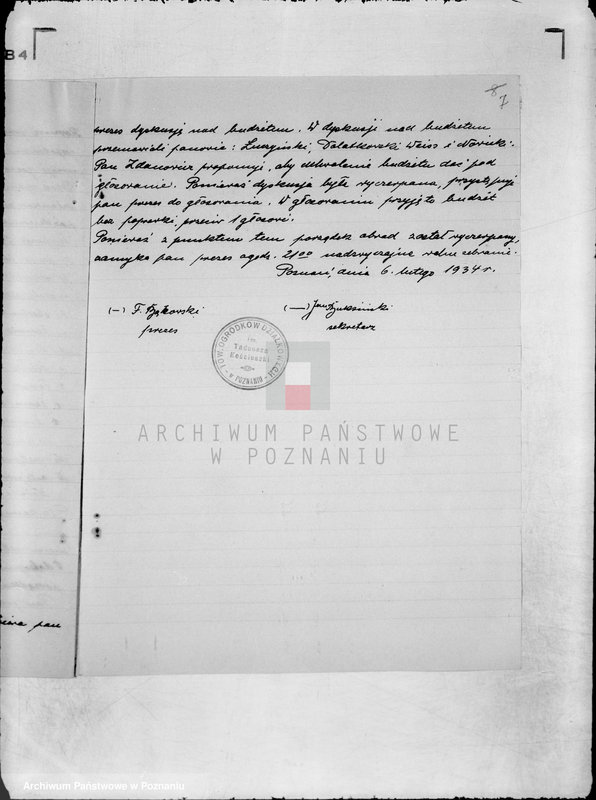 B4
8
7
prezes dyskusję nad budżetem. W dyskusji nad budżetem
przemawiali panowie: Łuczyński, Dolatkowski, Weiss i Nowicki.
Pan Zdanowicz proponuje, aby uchwalenie budżetu dać pod
głosowanie. Ponieważ dyskusja była wyczerpana, przystępuje
pan prezes do głosowania. W głosowaniu przyjęto budżet
bez poprawki, przeciw 1 głosowi.
Ponieważ z punktem tem porządek obrad został wyczerpany,
zamyka pan prezes o godz. 2100 nadzwyczajne walne zebranie.
Poznań, dnia 6. lutego 1934 r.
(-) F. Bąkowski
prezes
(—) Jan
sekretarz
TOW. OGRÓDKÓW DZIAŁKOWYCH
im.
Tadeusza
Kościuszki
w POZNANIU
ARCHIWUM PAŃSTWOWE
W POZNANIU
pan
Archiwum Państwowe w Poznaniu